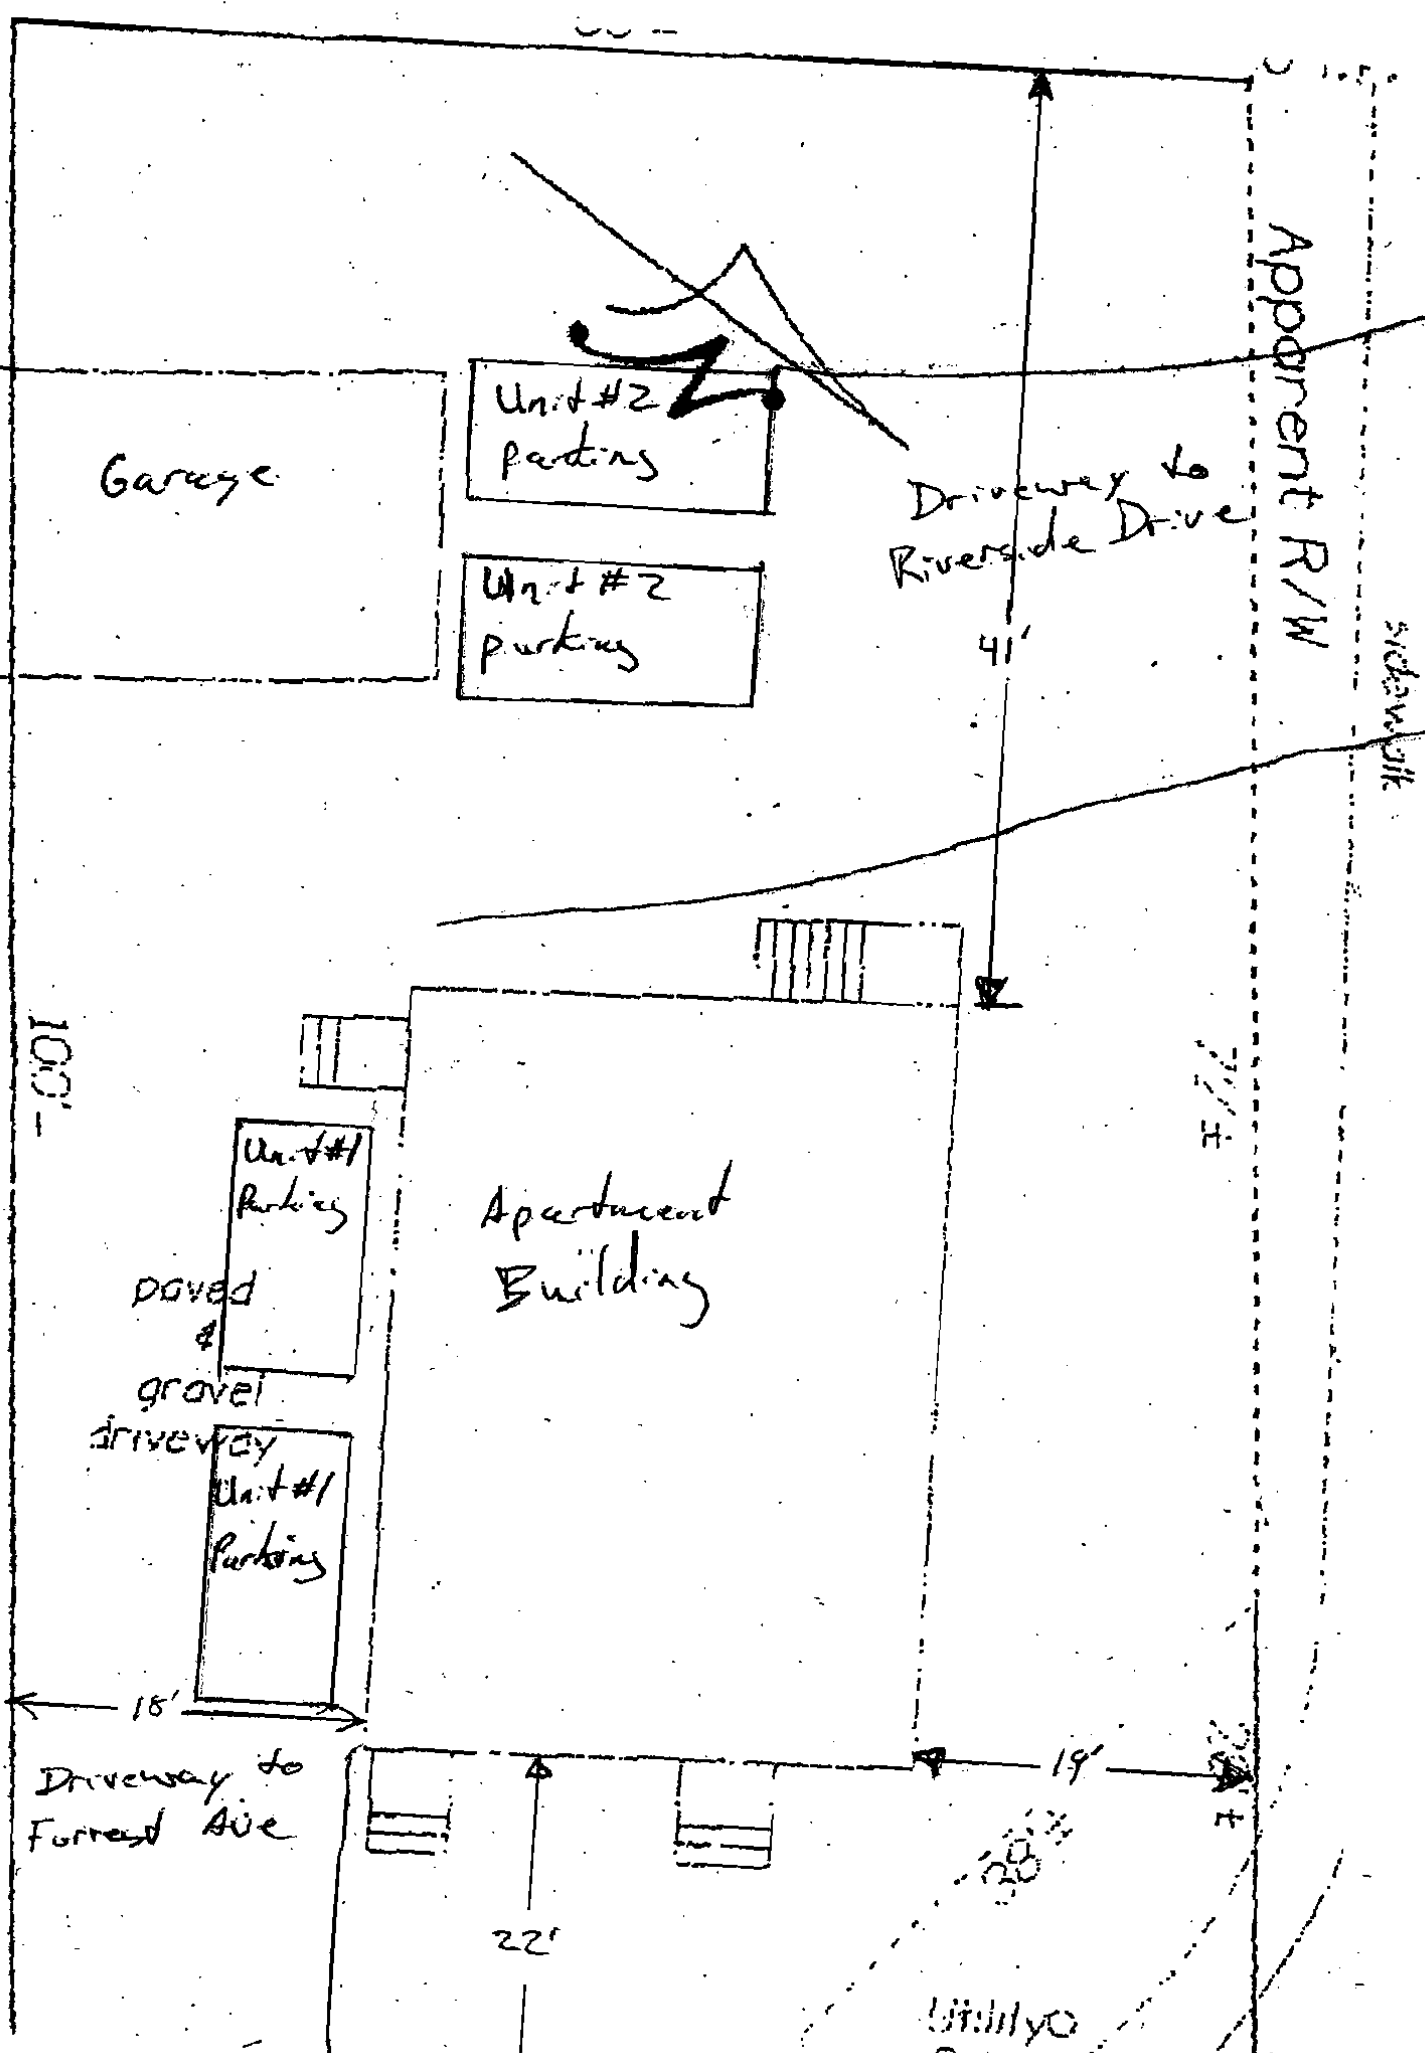 Garage
Unit #2
parking
Unit #2
parking
Driveway to
Riverside Drive
Apparent R/W
sidewalk
41'
100'-
Unit #1
Parking
paved
&
gravel
driveway
Unit #1
Parking
Apartment
Building
18'
19'
Driveway to
Forrest Ave
22'
Utility